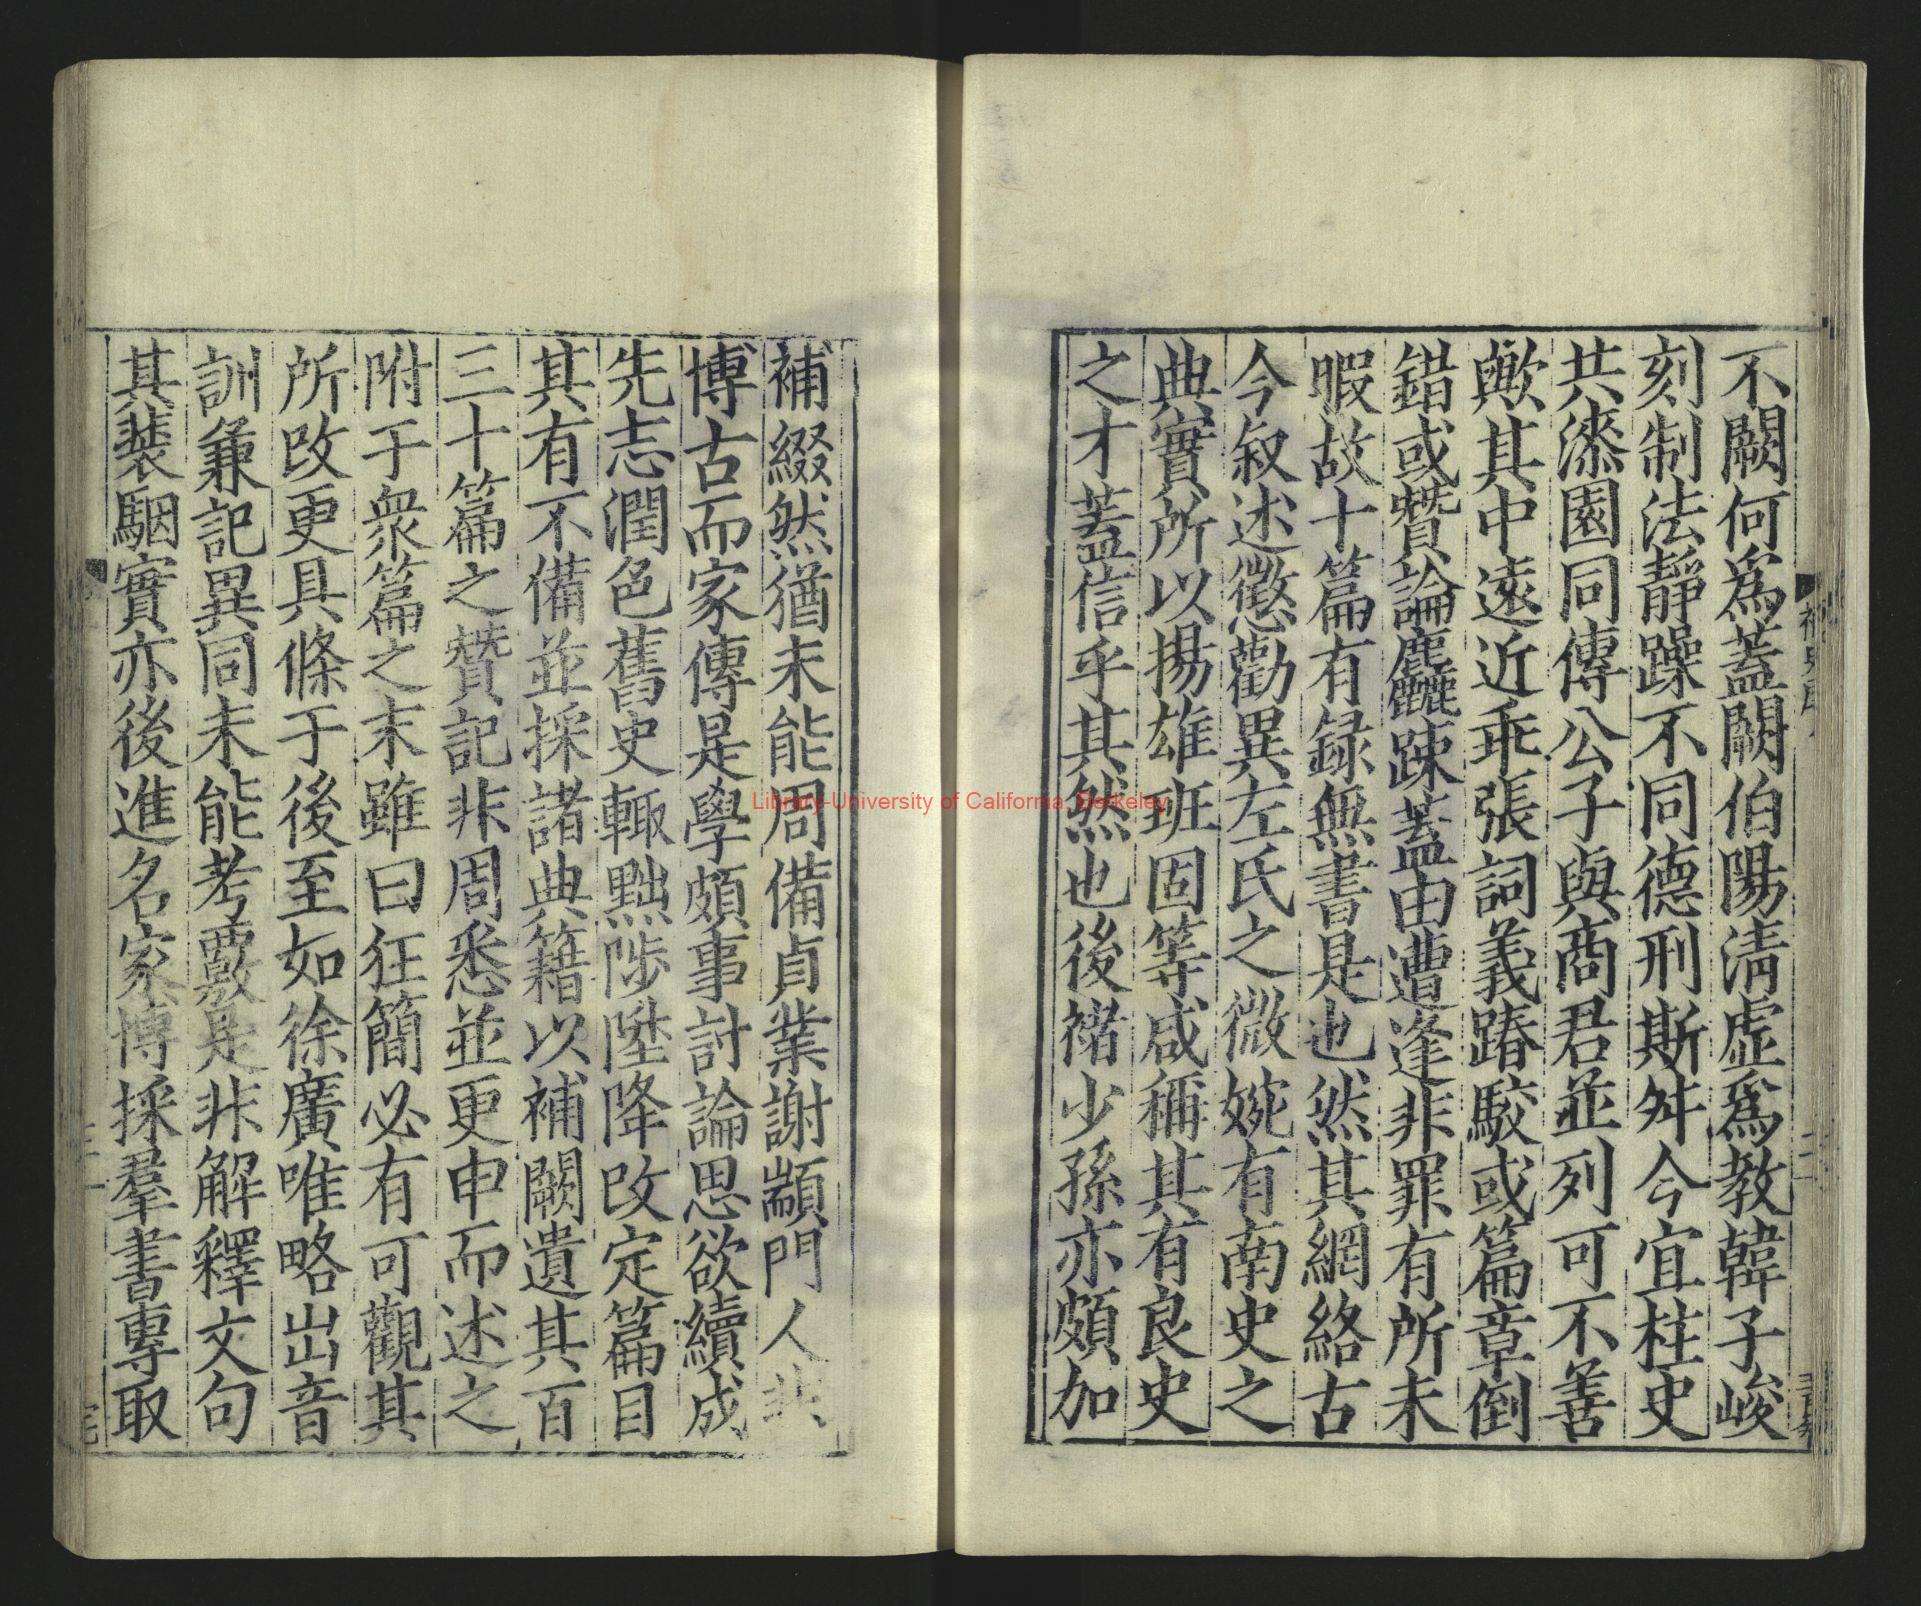 不闕何爲蓋闕伯陽淸虛爲教韓子峻
刻制法靜躁不同德刑斯舛今宜柱史
共漆園同傳公子與商君並列可不善
歟其中遠近乖張詞義踳駮或篇章倒
錯或贊論麤疎蓋由遭逢非罪有所未
暇故十篇有録無書是也然其網絡古
今叙述懲勸異左氏之微婉有南史之
典實所以揚雄班固等咸稱其有良史
之才蓋信乎其然也後褚少孫亦頗加
補綴然猶未能周備貞業謝顓門人非
博古而家傳是學頗事討論思欲續成
先志潤色舊史輙黜陟陞降改定篇目
其有不備並採諸典籍以補闕遺其百
三十篇之贊記非周悉並更申而述之
附于衆篇之末雖曰狂簡必有可觀其
所改更具條于後至如徐廣唯略出音
訓兼記異同未能考覈是非解釋文句
其裴駰實亦後進名家博採羣書專取
Library-University of California, Berkeley